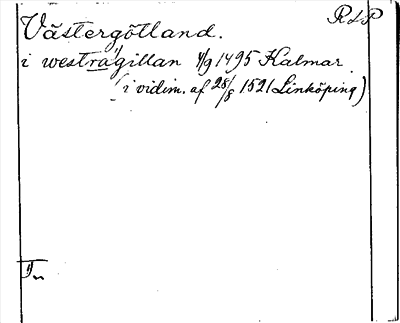 Västergötland. RAP
i westragillan 4/9 1495 Kalmar
(i vidim. af 28/8 1521 Linköping)